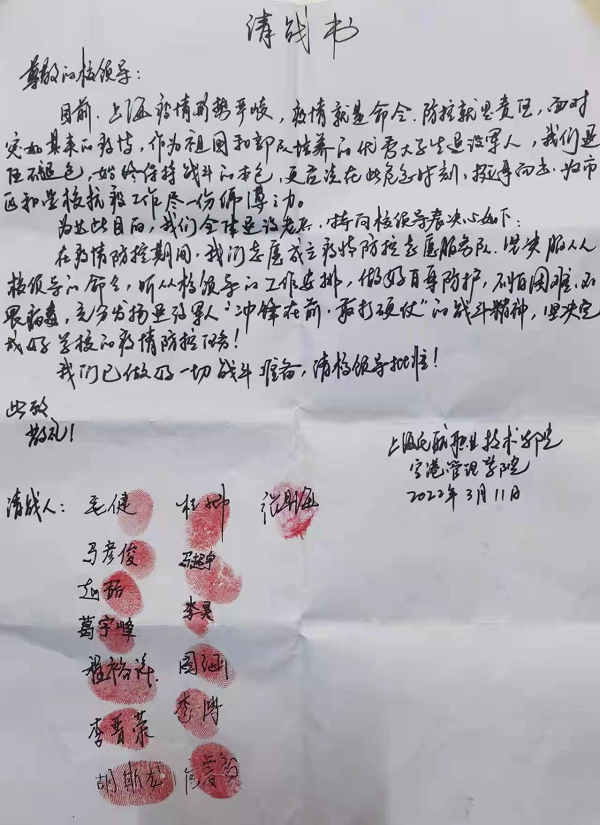 请战书
尊敬的校领导：
目前，上海疫情形势严峻，疫情就是命令，防控就是责任，面对
突如其来的疫情，作为祖国和部队培养的优秀大学生退役军人，我们退
伍不褪色，始终保持战斗的本色，更应该在此危急时刻，挺身而出，为市
区和学校抗疫工作尽一份绵薄之力。
为达此目的，我们全体退役老兵，特向校领导表决心如下：
在疫情防控期间，我们志愿成立疫情防控志愿服务队，坚决服从
校领导的命令，听从校领导的工作安排，做好自身防护，不怕困难，不
畏病毒，充分发扬退役军人“冲锋在前，敢打硬仗”的战斗精神，坚决完
成好学校的疫情防控任务！
我们已做好一切战斗准备，请校领导批准！
此致
敬礼！
上海民航职业技术学院
空港管理学院
2022年3月11日
请战人：毛健 杜坤
马彦俊 马超卓
赵韬 李昊
葛宇峰
程裕祥 周涵
李晋荣 李博
胡斯龙